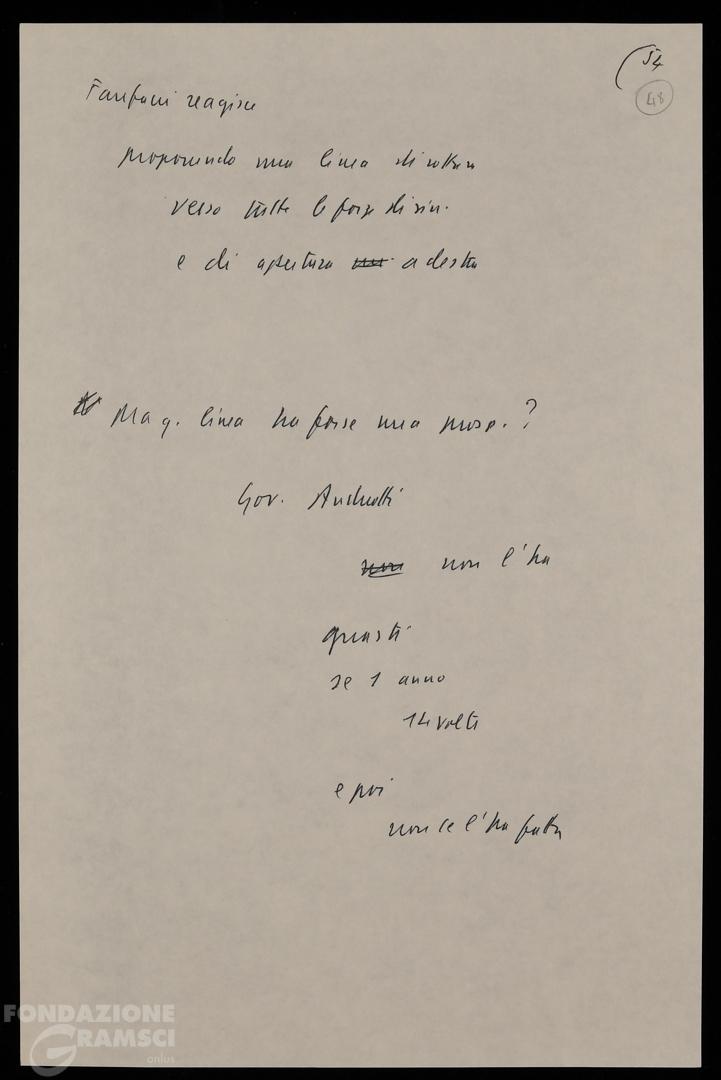 54
48
Fanfani reagisce
proponendo una linea di rottura
verso tutte le forze di sin.
e di apertura a destra
Ma q. linea ha forse una prosp. ?
Gov. Andreotti
non l'ha
guasti
se 1 anno
14 volte
e poi
non ce l'ha fatta
FONDAZIONE
GRAMSCI
onlus